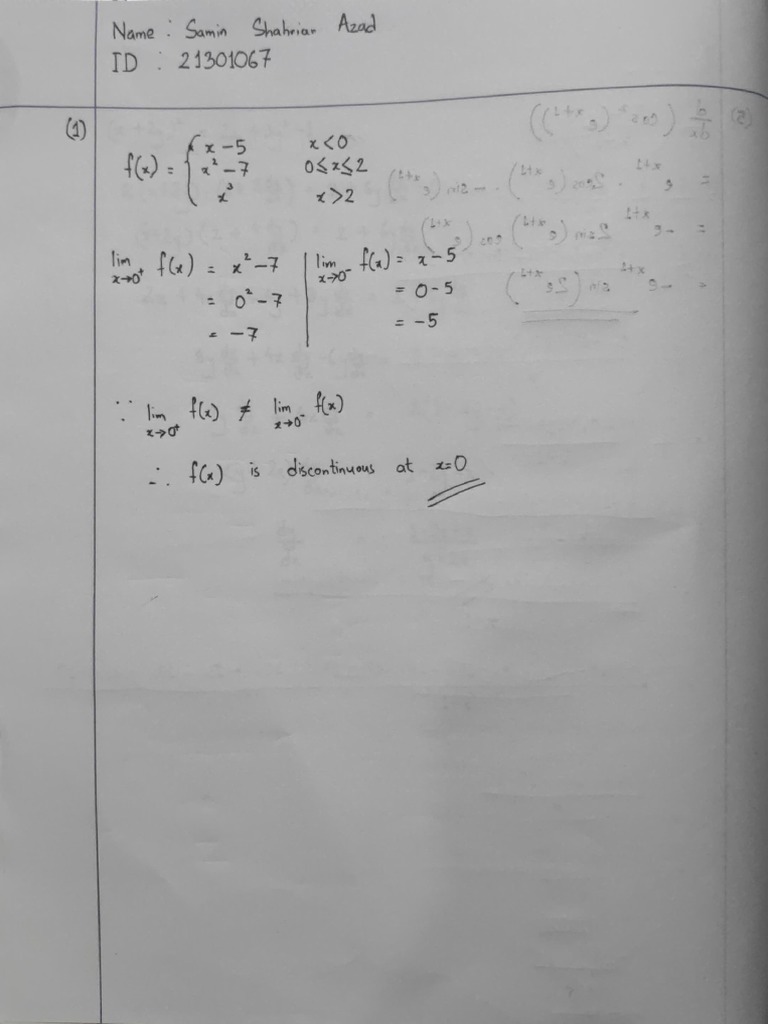 Name : Samin Shahriar Azad
ID : 21301067
(1)
f(x) = { x - 5 x < 0
x² - 7 0 ≤ x ≤ 2
x³ x > 2
lim x→0⁺ f(x) = x² - 7 | lim x→0⁻ f(x) = x - 5
= 0² - 7 = 0 - 5
= -7 = -5
∵ lim x→0⁺ f(x) ≠ lim x→0⁻ f(x)
∴ f(x) is discontinuous at x=0